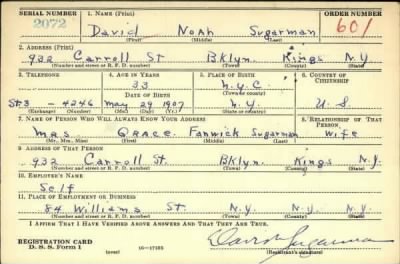 SERIAL NUMBER 1. NAME (Print) ORDER NUMBER
2072 David Noah Sugarman 601
(First) (Middle) (Last)
2. ADDRESS (Print)
932 Carroll St Bklyn. Kings N.Y.
(Number and street or R. F. D. number) (Town) (County) (State)
3. TELEPHONE 4. AGE IN YEARS 5. PLACE OF BIRTH 6. COUNTRY OF CITIZENSHIP
33 N.Y.C.
DATE OF BIRTH (Town or county)
St3 - 4246 May 29 1907 N.Y. U.S
(Exchange) (Number) (Mo.) (Day) (Yr.) (State or country)
7. NAME OF PERSON WHO WILL ALWAYS KNOW YOUR ADDRESS 8. RELATIONSHIP OF THAT PERSON
Mrs. Grace Sugarman Wife
(Mr., Mrs., Miss) (First) (Middle) (Last)
9. ADDRESS OF THAT PERSON
932 Carroll St. Bklyn. Kings N.Y.
(Number and street or R. F. D. number) (Town) (County) (State)
10. EMPLOYER'S NAME
Self
11. PLACE OF EMPLOYMENT OR BUSINESS
84 Williams St. N.Y. N.Y. N.Y.
(Number and street or R. F. D. number) (Town) (County) (State)
I AFFIRM THAT I HAVE VERIFIED ABOVE ANSWERS AND THAT THEY ARE TRUE.
REGISTRATION CARD
D. S. S. Form 1 (over) 16-17105 (Registrant's signature)